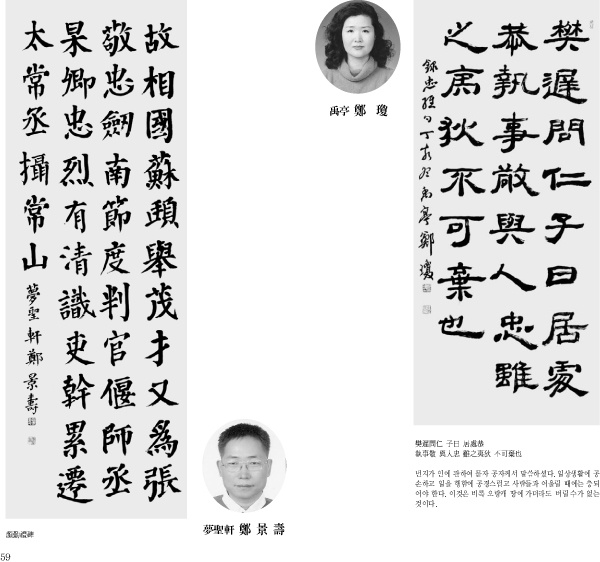 故相國蘇頲舉茂才又爲張
敬忠劒南節度判官偃師丞
杲卿忠烈有清識吏幹累遷
太常丞攝常山
夢聖軒鄭景壽
顔勤禮碑
59
禹亭 鄭 瓊
夢聖軒 鄭 景 壽
樊遲問仁子曰居處
恭執事敬與人忠雖
之夷狄不可棄也
禹亭鄭瓊
樊遲問仁 子曰 居處恭
執事敬 與人忠 雖之夷狄 不可棄也
번지가 인에 관하여 묻자 공자께서 말씀하셨다. 일상생활에 공
손하고 일을 행함에 공경스럽고 사람들과 어울릴 때에는 충되
어야 한다. 이것은 비록 오랑캐 땅에 가더라도 버릴 수가 없는
것이다.